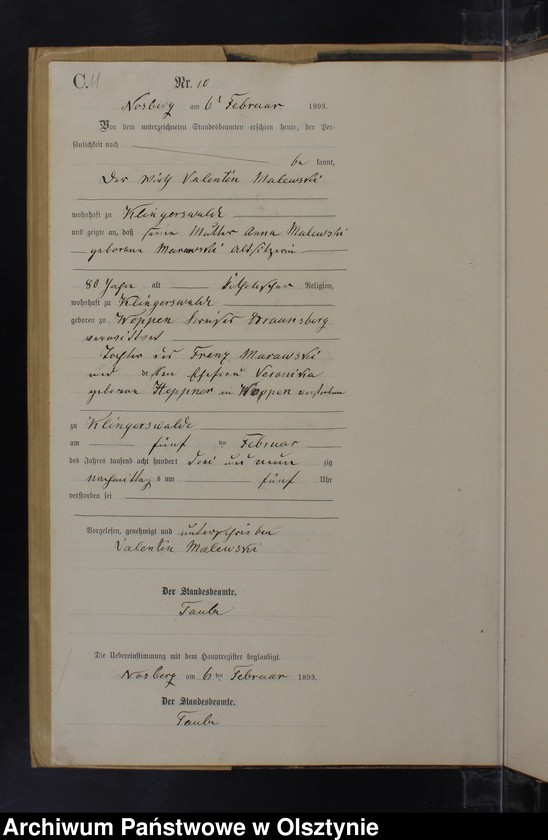 C. 11 Nr. 10
Nosberg am 6t Februar 1893.
Vor dem unterzeichneten Standesbeamten erschien heute, der Per-
sönlichkeit nach
be kannt,
Der Wirth Valentin Malewski
wohnhaft zu Klingerswalde
und zeigte an, daß seine Mutter Anna Malewski
geborene Marawski Altsitzerin
80 Jahre alt katholischer Religion,
wohnhaft zu Klingerswalde
geboren zu Woppen Kreises Braunsberg
verwittwet
Tochter des Franz Marawski
und dessen Ehefrau Veronika
geborene Heppner in Woppen verstorben
zu Klingerswalde
am fünf ten Februar
des Jahres tausend acht hundert drei und neun zig
nachmittag s um fünf Uhr
verstorben sei
Vorgelesen, genehmigt und unterschrieben
Valentin Malewski
Der Standesbeamte.
Die Uebereinstimmung mit dem Hauptregister beglaubigt.
Nosberg am 6 ten Februar 1893.
Der Standesbeamte.
Archiwum Państwowe w Olsztynie